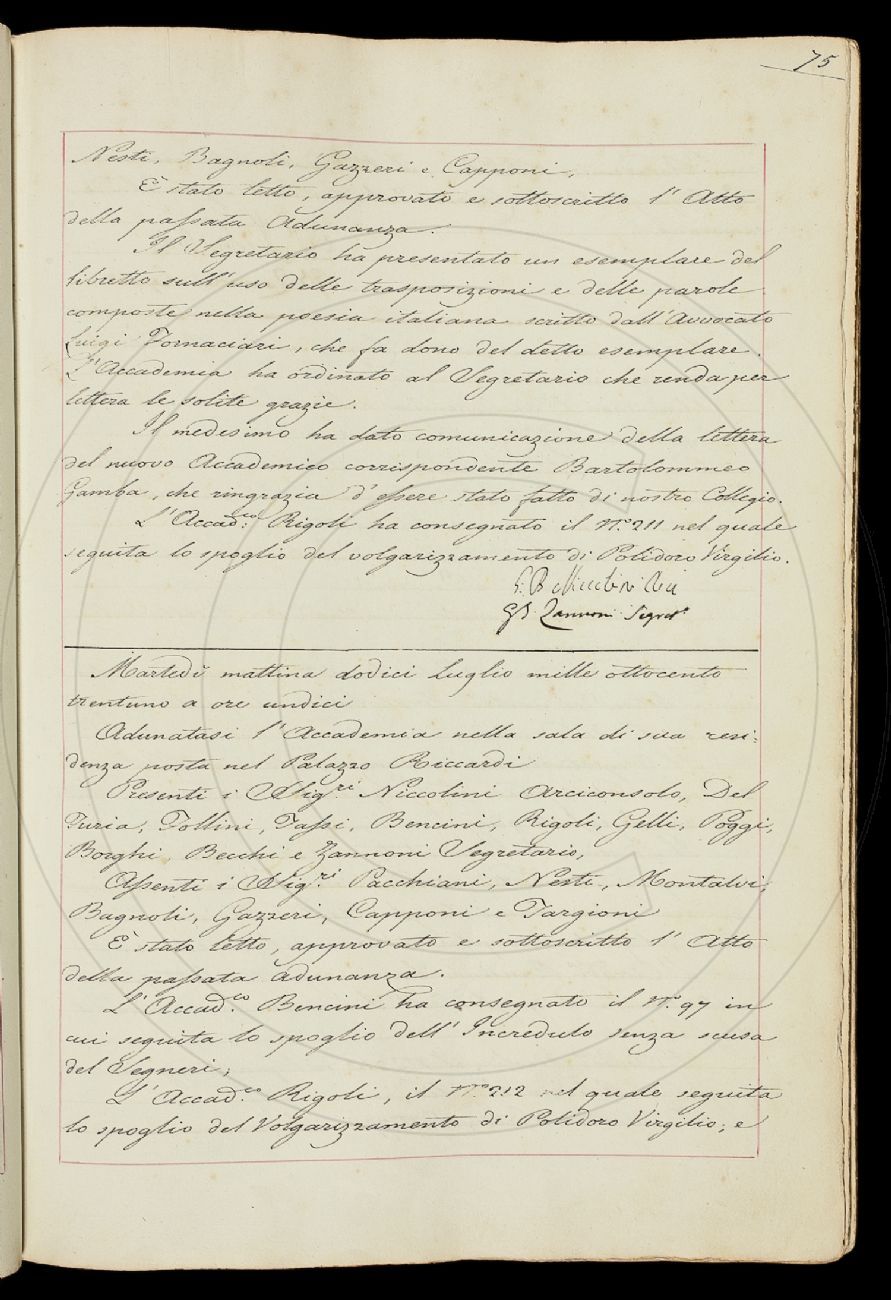 75
Nesti, Bagnoli, Gazzeri e Capponi.
È stato letto, approvato e sottoscritto l' Atto
della passata Adunanza.
Il Segretario ha presentato un esemplare del
libretto sull' uso delle trasposizioni e delle parole
composte nella poesia italiana scritto dall' Avvocato
Luigi Fornaciari, che fa dono del detto esemplare.
L' Accademia ha ordinato al Segretario che renda per
lettera le solite grazie.
Il medesimo ha dato comunicazione della lettera
del nuovo Accademico corrispondente Bartolommeo
Gamba, che ringrazia d' essere stato fatto di nostro Collegio.
L' Accad:co Rigoli ha consegnato il N.o 211 nel quale
seguita lo spoglio del volgarizzamento di Polidoro Virgilio.
G: B Niccolini
GB Zannoni Segret.o
Martedì mattina dodici Luglio mille ottocento
trentuno a ore undici
Adunatasi l' Accademia nella sala di sua resi:
denza posta nel Palazzo Riccardi
Presenti i Sig.ri Niccolini Arciconsolo, Del
Furia, Follini, Tassi, Bencini, Rigoli, Gelli, Poggi,
Borghi, Becchi e Zannoni Segretario,
Assenti i Sig.ri Pacchiani, Nesti, Montalvi,
Bagnoli, Gazzeri, Capponi e Targioni
È stato letto, approvato e sottoscritto l' Atto
della passata adunanza.
L' Accad.co Bencini ha consegnato il N.o 97 in
cui seguita lo spoglio dell' Incredulo senza scusa
del Segneri;
L' Accad.co Rigoli, il N.o 212 nel quale seguita
lo spoglio del Volgarizzamento di Polidoro Virgilio; e